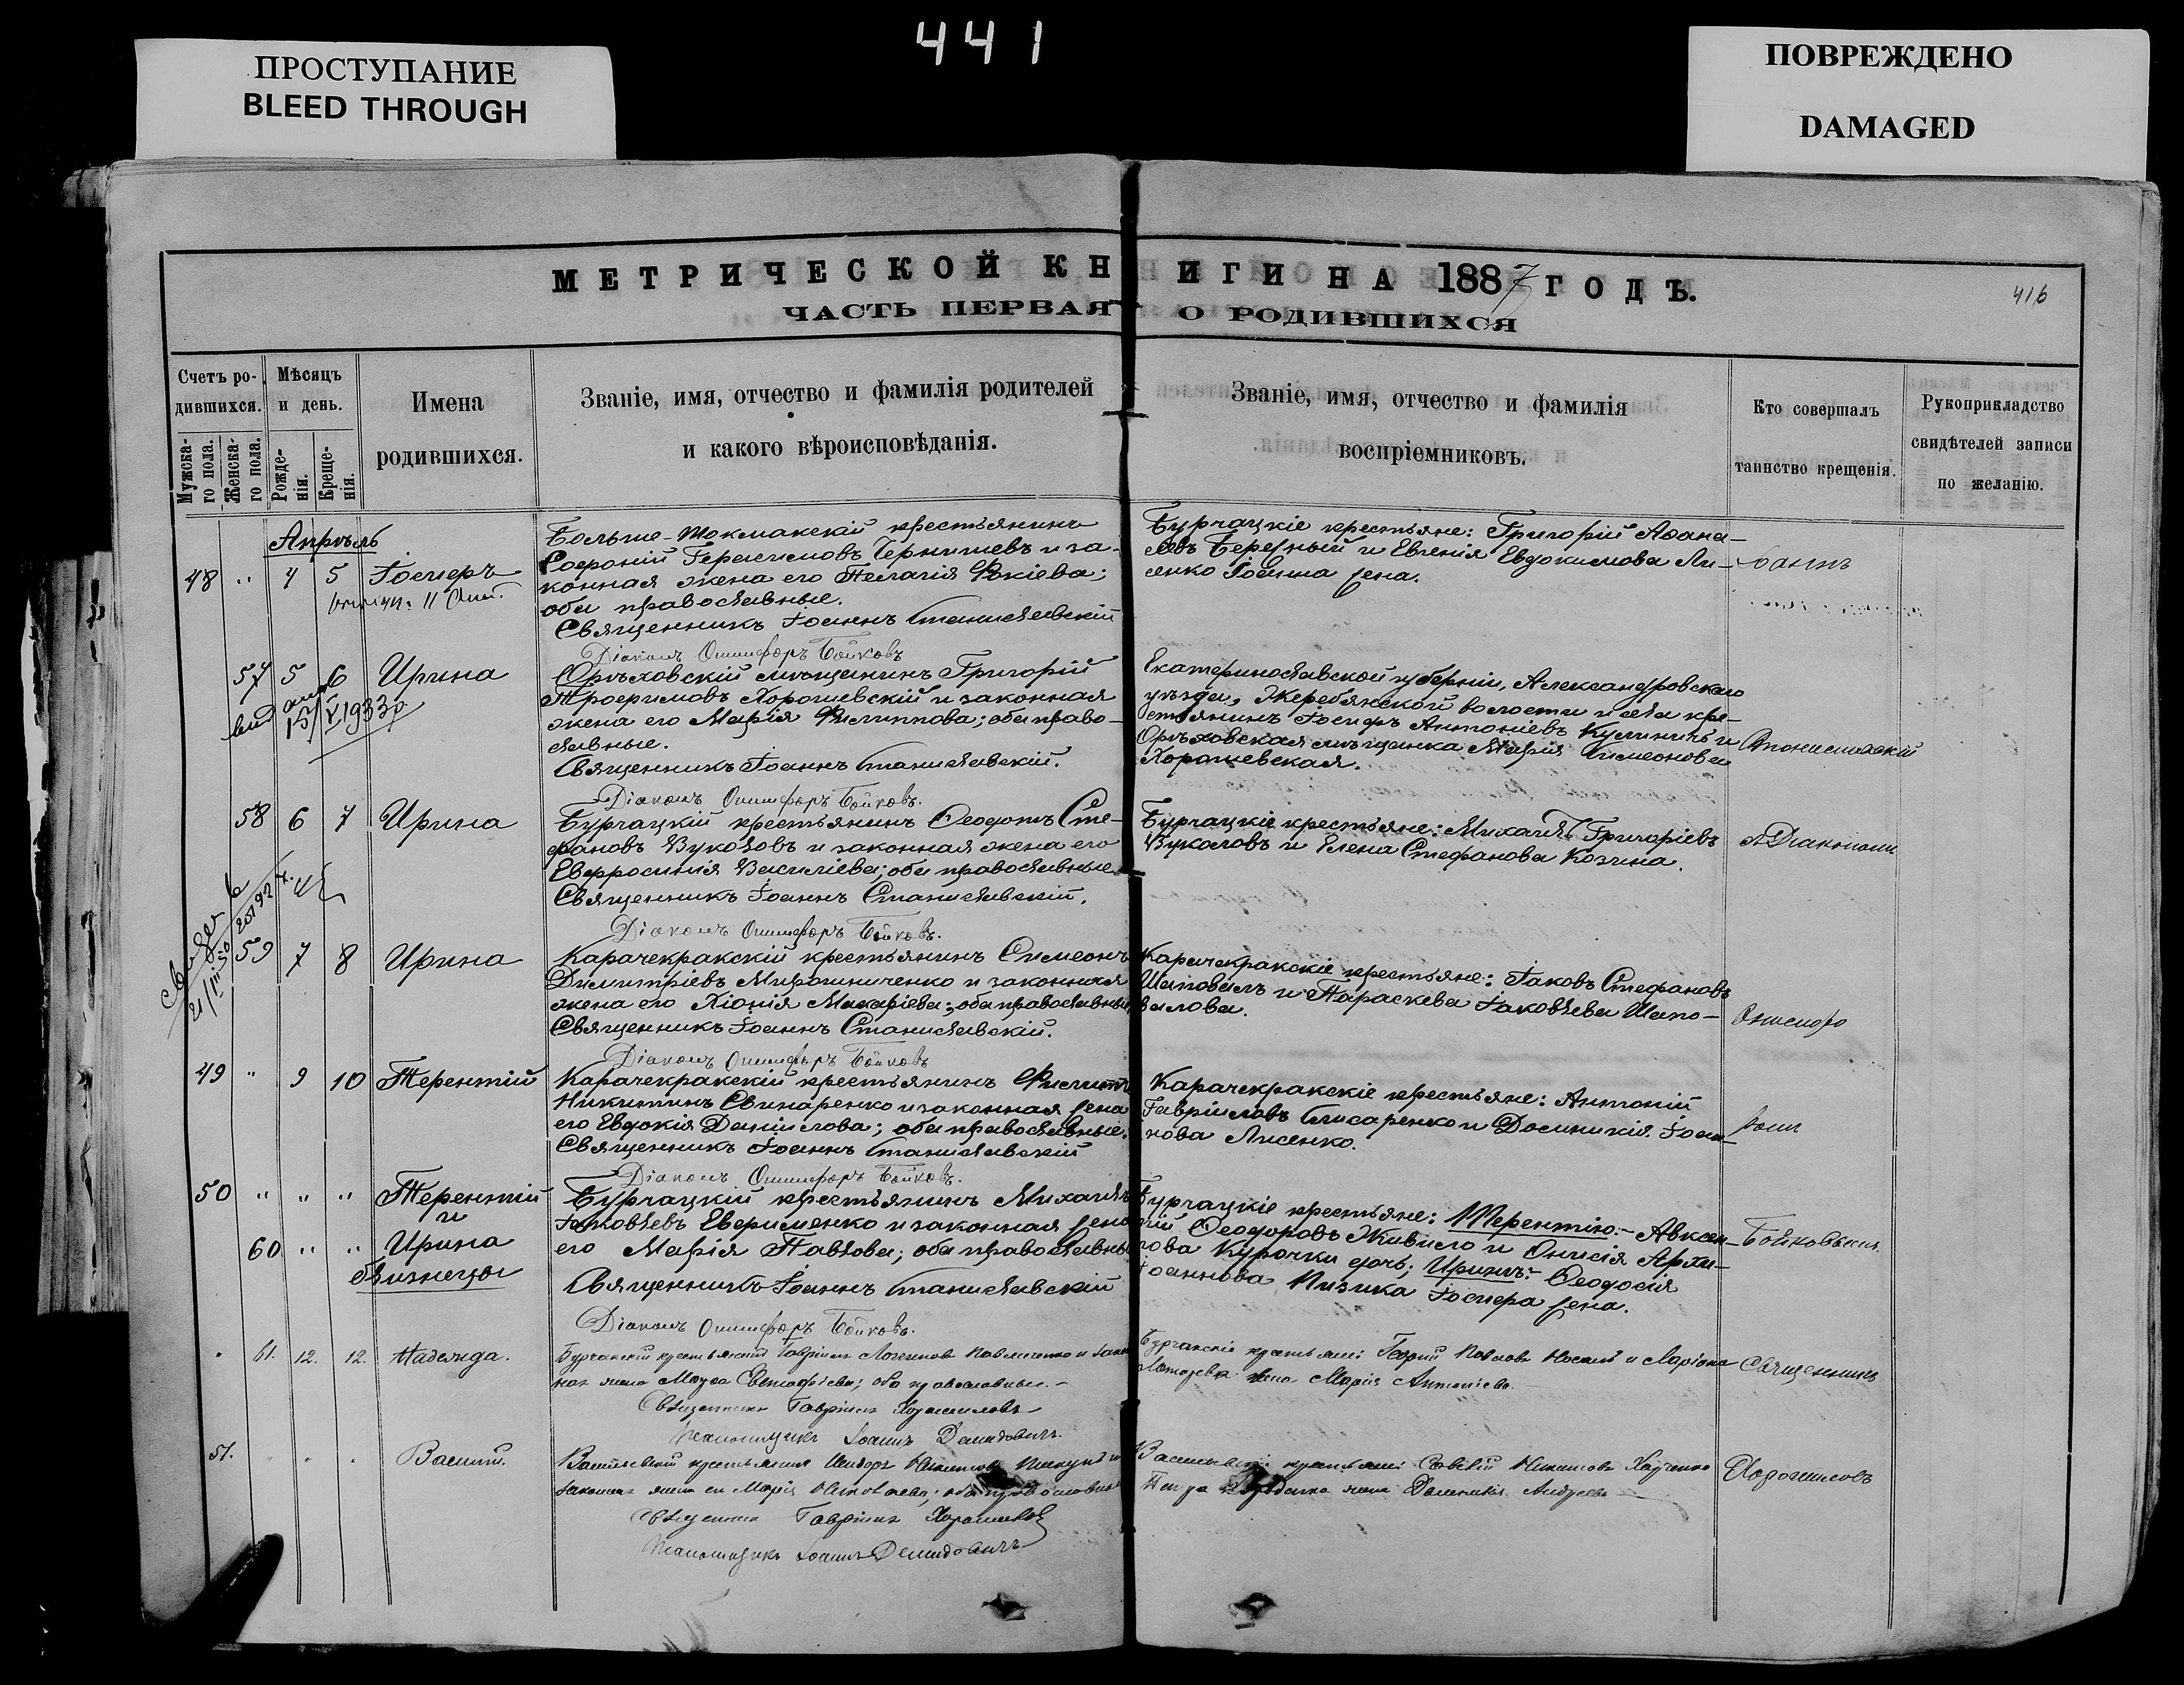 441
ПРОСТУПАНИЕ
BLEED THROUGH
ПОВРЕЖДЕНО
DAMAGED
МЕТРИЧЕСКОЙ КНИГИ НА 1887 ГОДЪ.
416
ЧАСТЬ ПЕРВАЯ О РОДИВШИХСЯ
Счетъ ро-
дившихся.
Мужска-
го пола.
Женска-
го пола.
Мѣсяцъ
и день.
Рожде-
нія.
Креще-
нія.
Имена
родившихся.
Званіе, имя, отчество и фамилія родителей
и какого вѣроисповѣданія.
Званіе, имя, отчество и фамилія
воспріемниковъ.
Кто совершалъ
таинство крещенія.
Рукоприкладство
свидѣтелей записи
по желанію.
Апрѣль
48 " 4 5 Іосифъ
Больше-Токмакскій крестьянинъ
Софроній Герасимовъ Чернишевъ и за-
конная жена его Пелагія Фокіева;
оба православные.
Священникъ Іоаннъ Станиславскій
Діаконъ Онисифоръ Бойковъ
Бурчацкіе крестьяне: Григорій Афана-
сіевъ Березный и Евгенія Евдокимова Ли-
сенко Іоанна жена.
57 5 6 Ирина
15/V 1933 р
Орѣховскій мѣщанинъ Григорій
Трофимовъ Хорошевскій и законная
жена его Марія Филиппова; оба право-
славные.
Священникъ Іоаннъ Станиславскій.
Діаконъ Онисифоръ Бойковъ.
Екатеринославской губерніи, Александровскаго
уѣзда, Жеребянской волости и села кре-
стьянинъ Іосифъ Антоніевъ Кулиничъ и
Орѣховская мѣщанка Марія Симеонова
Хорошевская.
Станиславскій
58 6 7 Ирина
Бурчацкій крестьянинъ Феодотъ Сте-
фановъ Вуколовъ и законная жена его
Евфросинія Василіева; оба православные.
Священникъ Іоаннъ Станиславскій.
Діаконъ Онисифоръ Бойковъ.
Бурчацкіе крестьяне: Михаилъ Григоріевъ
Вуколовъ и Елена Стефанова Козина.
59 7 8 Ирина
Карачекракскій крестьянинъ Симеонъ
Димитріевъ Мирошниченко и законная
жена его Хіонія Макаріева; оба православные
Священникъ Іоаннъ Станиславскій.
Діаконъ Онисифоръ Бойковъ
Карачекракскіе крестьяне: Іаковъ Стефановъ
Шаповалъ и Параскева Іаковлева Шапо-
валова.
Онисифо
49 " 9 10 Терентій
Карачекракскій крестьянинъ Филиппъ
Никитинъ Свинаренко и законная жена
его Евдокія Даніилова; оба православные.
Священникъ Іоаннъ Станиславскій
Діаконъ Онисифоръ Бойковъ.
Карачекракскіе крестьяне: Антоній
Гавріиловъ Слисаренко и Домникія Іоан-
нова Лисенко.
50 " " " Терентій
и
60 " " Ирина
близнецы
Бурчацкій крестьянинъ Михаилъ
Іаковлевъ Ефименко и законная жена
его Марія Павлова; оба православные
Священникъ Іоаннъ Станиславскій
Діаконъ Онисифоръ Бойковъ.
Бурчацкіе крестьяне: Терентію:- Авксен-
тій Феодоровъ Живило и Онисія Архи-
пова Курочки дочь; Иринѣ:- Феодосія
Іоаннова Пизика Іосифа жена.
61. 12. 12. Надежда.
ная жена Марѳа Евстафіева; оба православные.-
Священникъ Гавріилъ Хорошиловъ
Псаломщикъ Іоаннъ Демидовичъ.
жена Марія Антоніева.
Священникъ
51. Василій.
законная жена его Марія Николаева; оба православные
Священникъ Гавріилъ Хорошиловъ
Псаломщикъ Іоаннъ Демидовичъ
Хорошиловъ